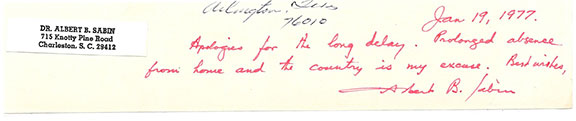 Arlington, Texas
76010
DR. ALBERT B. SABIN
715 Knotty Pine Road
Charleston, S. C. 29412
Jan 19, 1977.
Apologies for the long delay. Prolonged absence
from home and the country is my excuse. Best wishes,
Albert B. Sabin